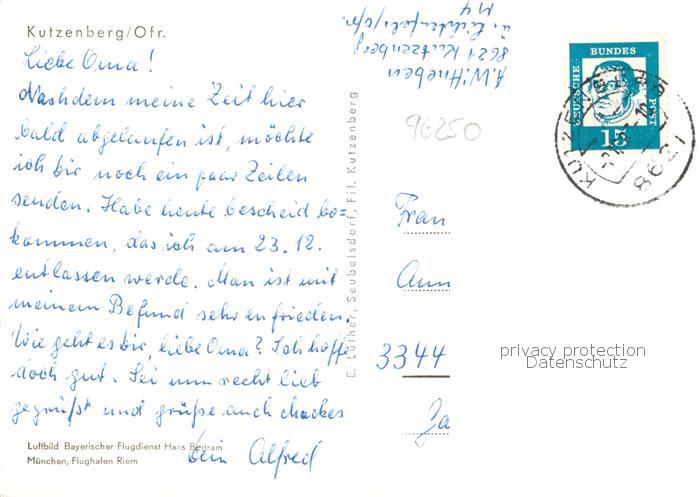 Kutzenberg/Ofr.
Liebe Oma!
Nachdem meine Zeit hier
bald abgelaufen ist, möchte
ich dir noch ein paar Zeilen
senden. Habe heute bescheid be=
kommen, das ich am 23.12.
entlassen werde. Man ist mit
meinem Befund sehr zufrieden.
Wie geht es dir, liebe Oma? Ich hoffe
doch gut. Sei nun recht lieb
gegrüßt und grüße auch
Dein Alfred
Luftbild Bayerischer Flugdienst Hans Bertram
München, Flughafen Riem
E. Luther, Seubelsdorf, Fil. Kutzenberg
8621 Kutzenberg
ü. Lichtenfels/Ofr.
M4
96250
DEUTSCHE BUNDESPOST
15
8621
Frau
Ann
3344
privacy protection
Datenschutz